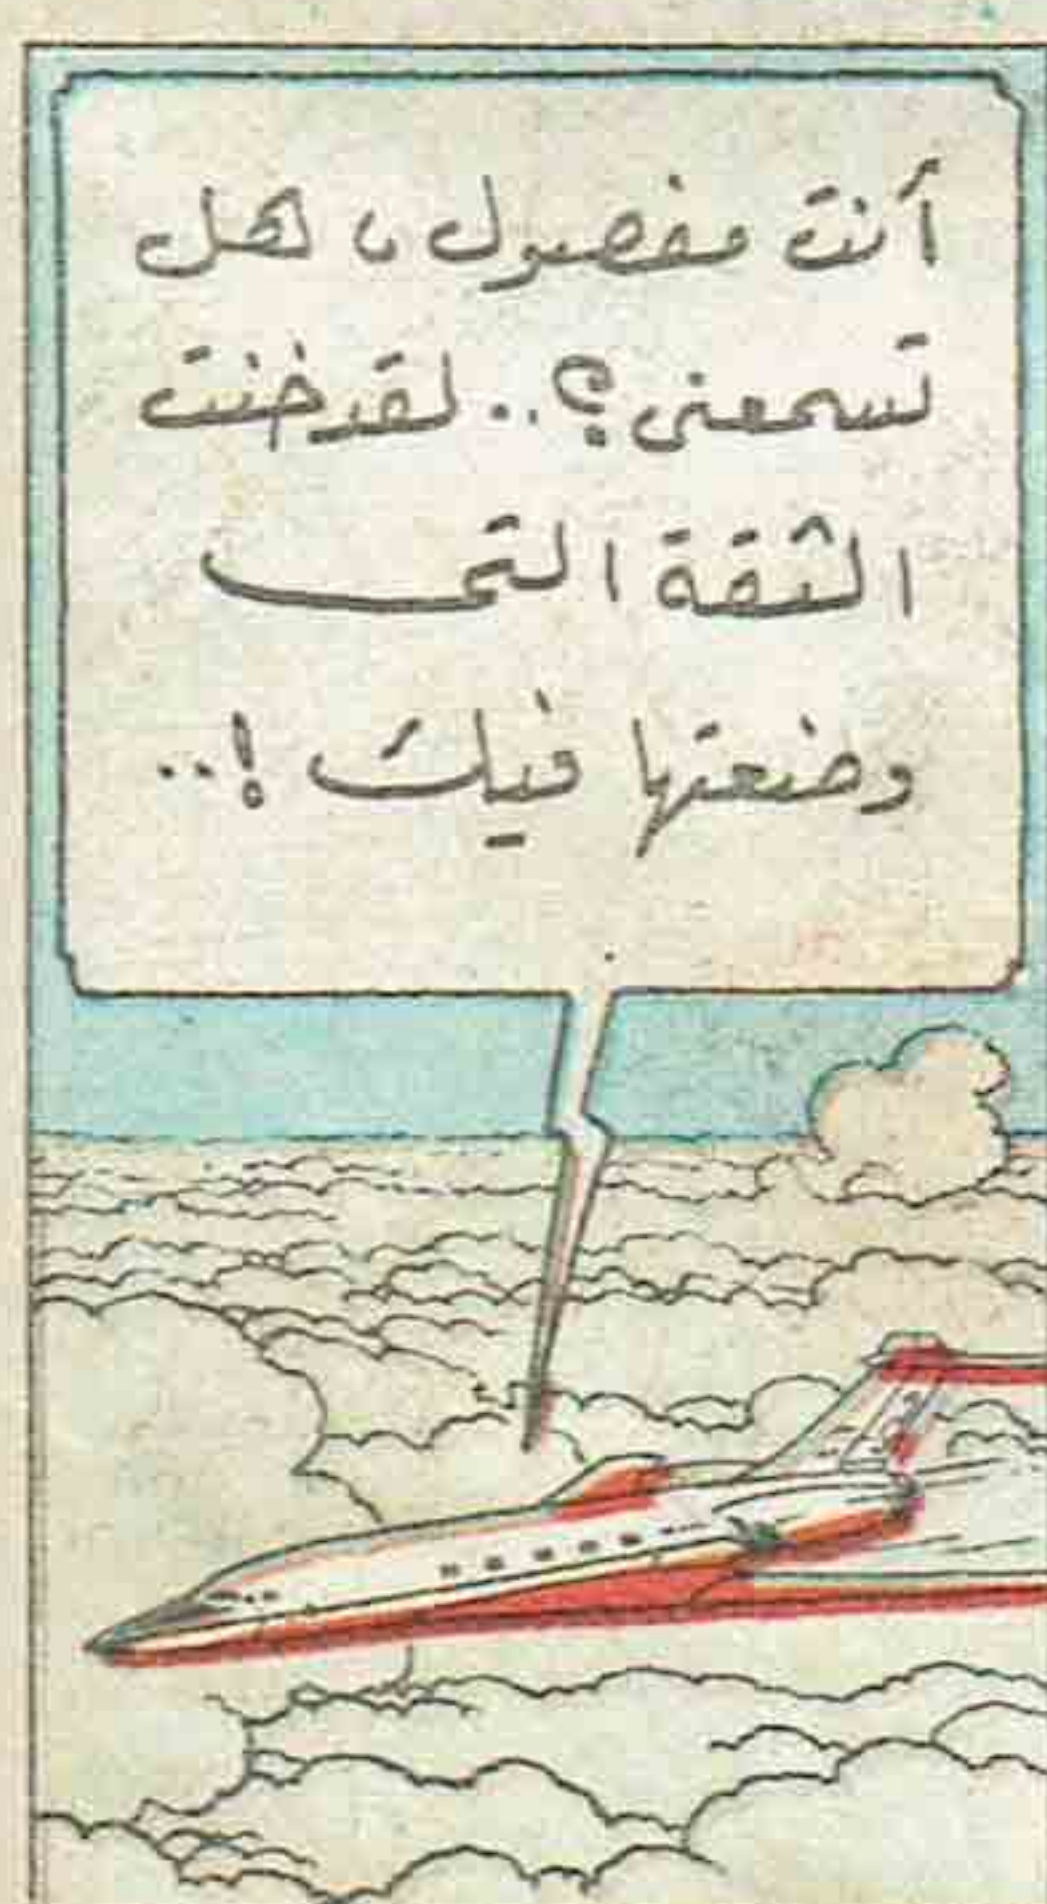 أنت مفصول، هل
تسمعنى؟.. لقد خنت
الثقة التى
وضعتها فيك!..